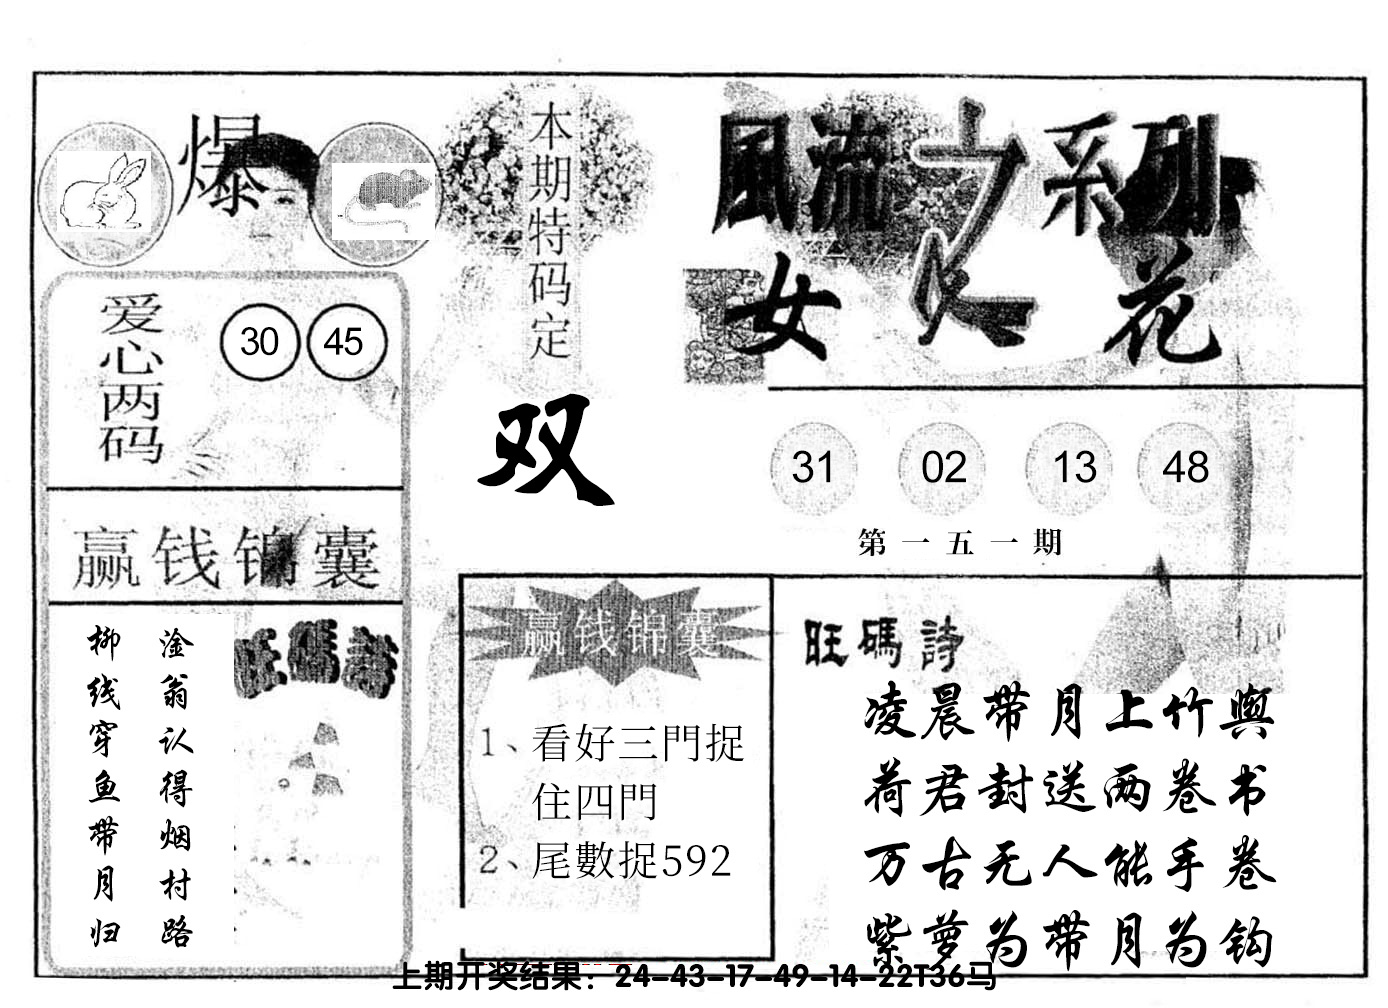 爆
本期特码定
双
風流之系列
女人花
爱心两码
30 45
31 02 13 48
第一五一期
赢钱锦囊
淦翁认得烟村路
柳线穿鱼带月归
旺碼詩
赢钱锦囊
1、看好三門捉
住四門
2、尾數捉592
旺碼詩
凌晨带月上竹舆
荷君封送两卷书
万古无人能手卷
紫萝为带月为钩
上期开奖结果：24-43-17-49-14-22T36马